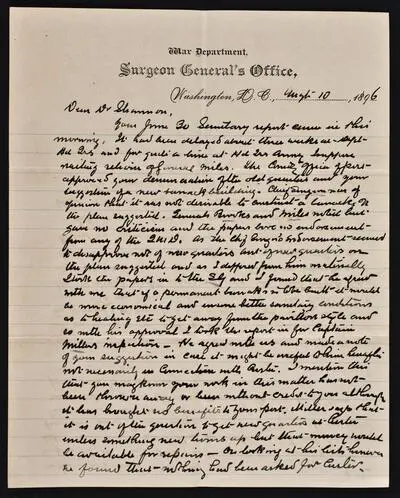 War Department,
Surgeon General's Office,
Washington, D. C., Augt 10, 1896
Dear Dr Shannon,
Your June 30 Sanitary report came in this
morning. It had been delayed about three weeks at Dept
Hd Qrs and for quite a time at Hd Qrs Army
return of General Miles. The
approved your denunciation of the old quarters and your
suggestion of a new barrack building. was of
opinion that it was not desirable to construct a barracks on
the plan suggested. Generals Brooke and Miles noted but
gave no criticism and the papers bore no endorsement
from any of the As the endorsement seemed
to disapprove not of new quarters but of new quarters on
the plan suggested and as I differed from him materially
I took the papers to the and found that he agreed
with me that if a permanent barracks is to be built it would
be more economical and insure better sanitary conditions
as to heating etc to get away from the pavilion style and
so with his approval I took the report in for Captain
Millers inspection. He agreed with us and made a note
of your suggestion in case it might be useful to him
not necessarily in connection with Custer. I mention this
that you may know your work in this matter has not
been thrown away or been without credit to you although
it has brought no benefits to your post. Miller says that
it is out of the question to get new quarters at Custer
unless something new turns up but that money would
be available for repairs — On looking at his list however
he found that nothing had been asked for Custer.